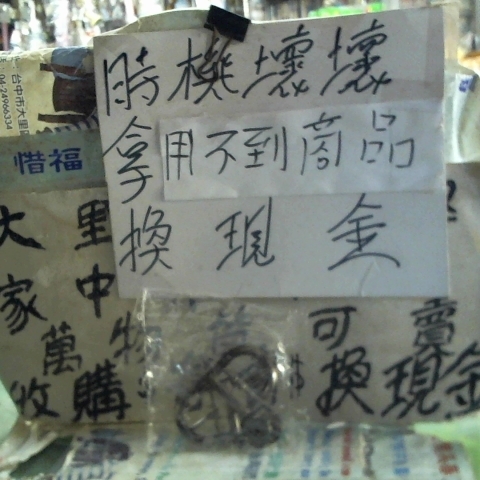 時機壞壞
拿用不到商品
換現金
台中市大里區
04-24966334
惜福
大里
家中
萬物 可賣
收購 換現金